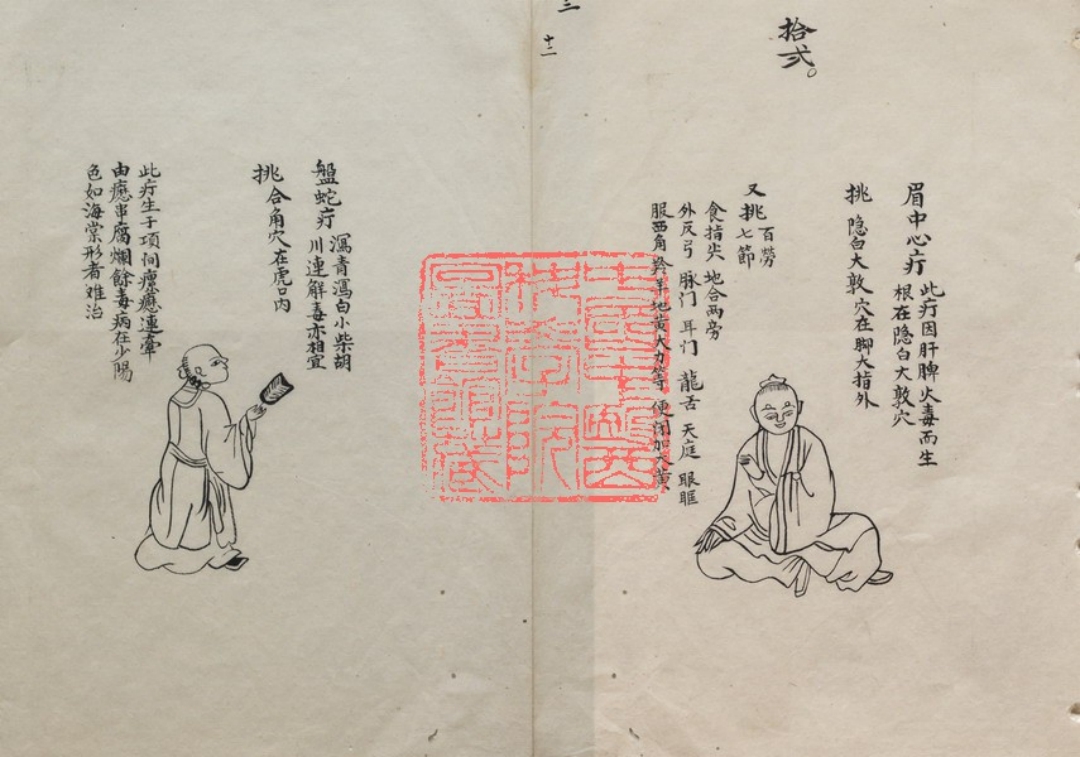 拾弍。
眉中心疔
此疔因肝脾火毒而生
根在隐白大敦穴
挑 隐白大敦 穴在脚大指外
又挑 百劳
七節
食指尖 地合两旁
外反弓 脉门 耳门 龍舌 天庭 眼眶
服西角羚羊地黄大力等 便闭加大黄
三
十二
盤蛇疔
瀉青瀉白小柴胡
川連解毒亦相宜
挑合角穴在虎口内
此疔生于項间
癧連牽
由癧串腐爛餘毒病在少陽
色如海棠形者难治